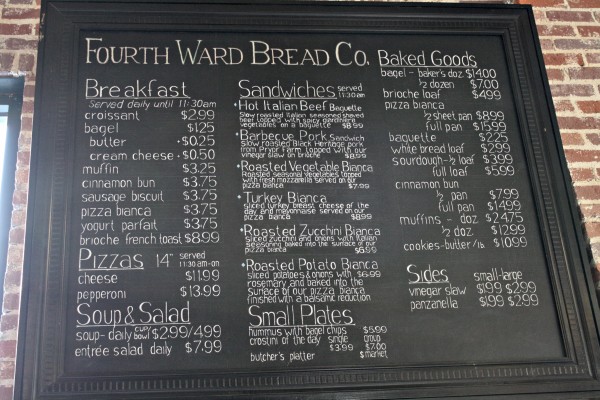 FOURTH WARD BREAD CO.
Breakfast
Served daily until 11:30am
croissant $2.99
bagel $1.25
butter +$0.25
cream cheese +$0.50
muffin $3.25
cinnamon bun $3.75
sausage biscuit $3.75
pizza bianca $3.75
yogurt parfait $3.75
brioche french toast $8.99
Pizzas 14" served 11:30am-on
cheese $11.99
pepperoni $13.99
Soup & Salad
soup-daily cup/bowl $2.99/4.99
entrée salad daily $7.99
Sandwiches served 11:30am
•Hot Italian Beef Baguette
Slow roasted Italian seasoned shaved
beef topped with spicy gardiniera
vegetables on a baguette $8.99
•Barbecue Pork Sandwich
slow roasted Black Heritage pork
from Pryor Farm topped with our
vinegar slaw on brioche $8.99
•Roasted Vegetable Bianca
Roasted seasonal vegetables topped
with fresh mozzarella served on our
pizza bianca $7.99
•Turkey Bianca
sliced turkey breast, cheese of the
day and mayonnaise served on our
pizza bianca $8.99
•Roasted Zucchini Bianca
sliced zucchini and onions with italian
seasoning baked into the surface of our
pizza bianca $6.50
•Roasted Potato Bianca
sliced potatoes & onions with $6.99
rosemary and baked into the
surface of our pizza bianca
finished with a balsamic reduction
Small Plates
hummus with bagel chips $5.99
crostini of the day single group
$3.99 $7.00
butcher's platter $market
Baked Goods
bagel - baker's doz. $14.00
½ dozen $7.00
brioche loaf $4.99
pizza bianca
½ sheet pan $8.99
full pan $15.99
baguette $2.25
white bread loaf $2.99
sourdough-½ loaf $3.99
full loaf $5.99
cinnamon bun
½ pan $7.99
full pan $14.99
muffins - doz. $24.75
½ doz $12.99
cookies-butter/lb $10.99
Sides small-large
vinegar slaw $1.99 $2.99
panzanella $1.99 $2.99